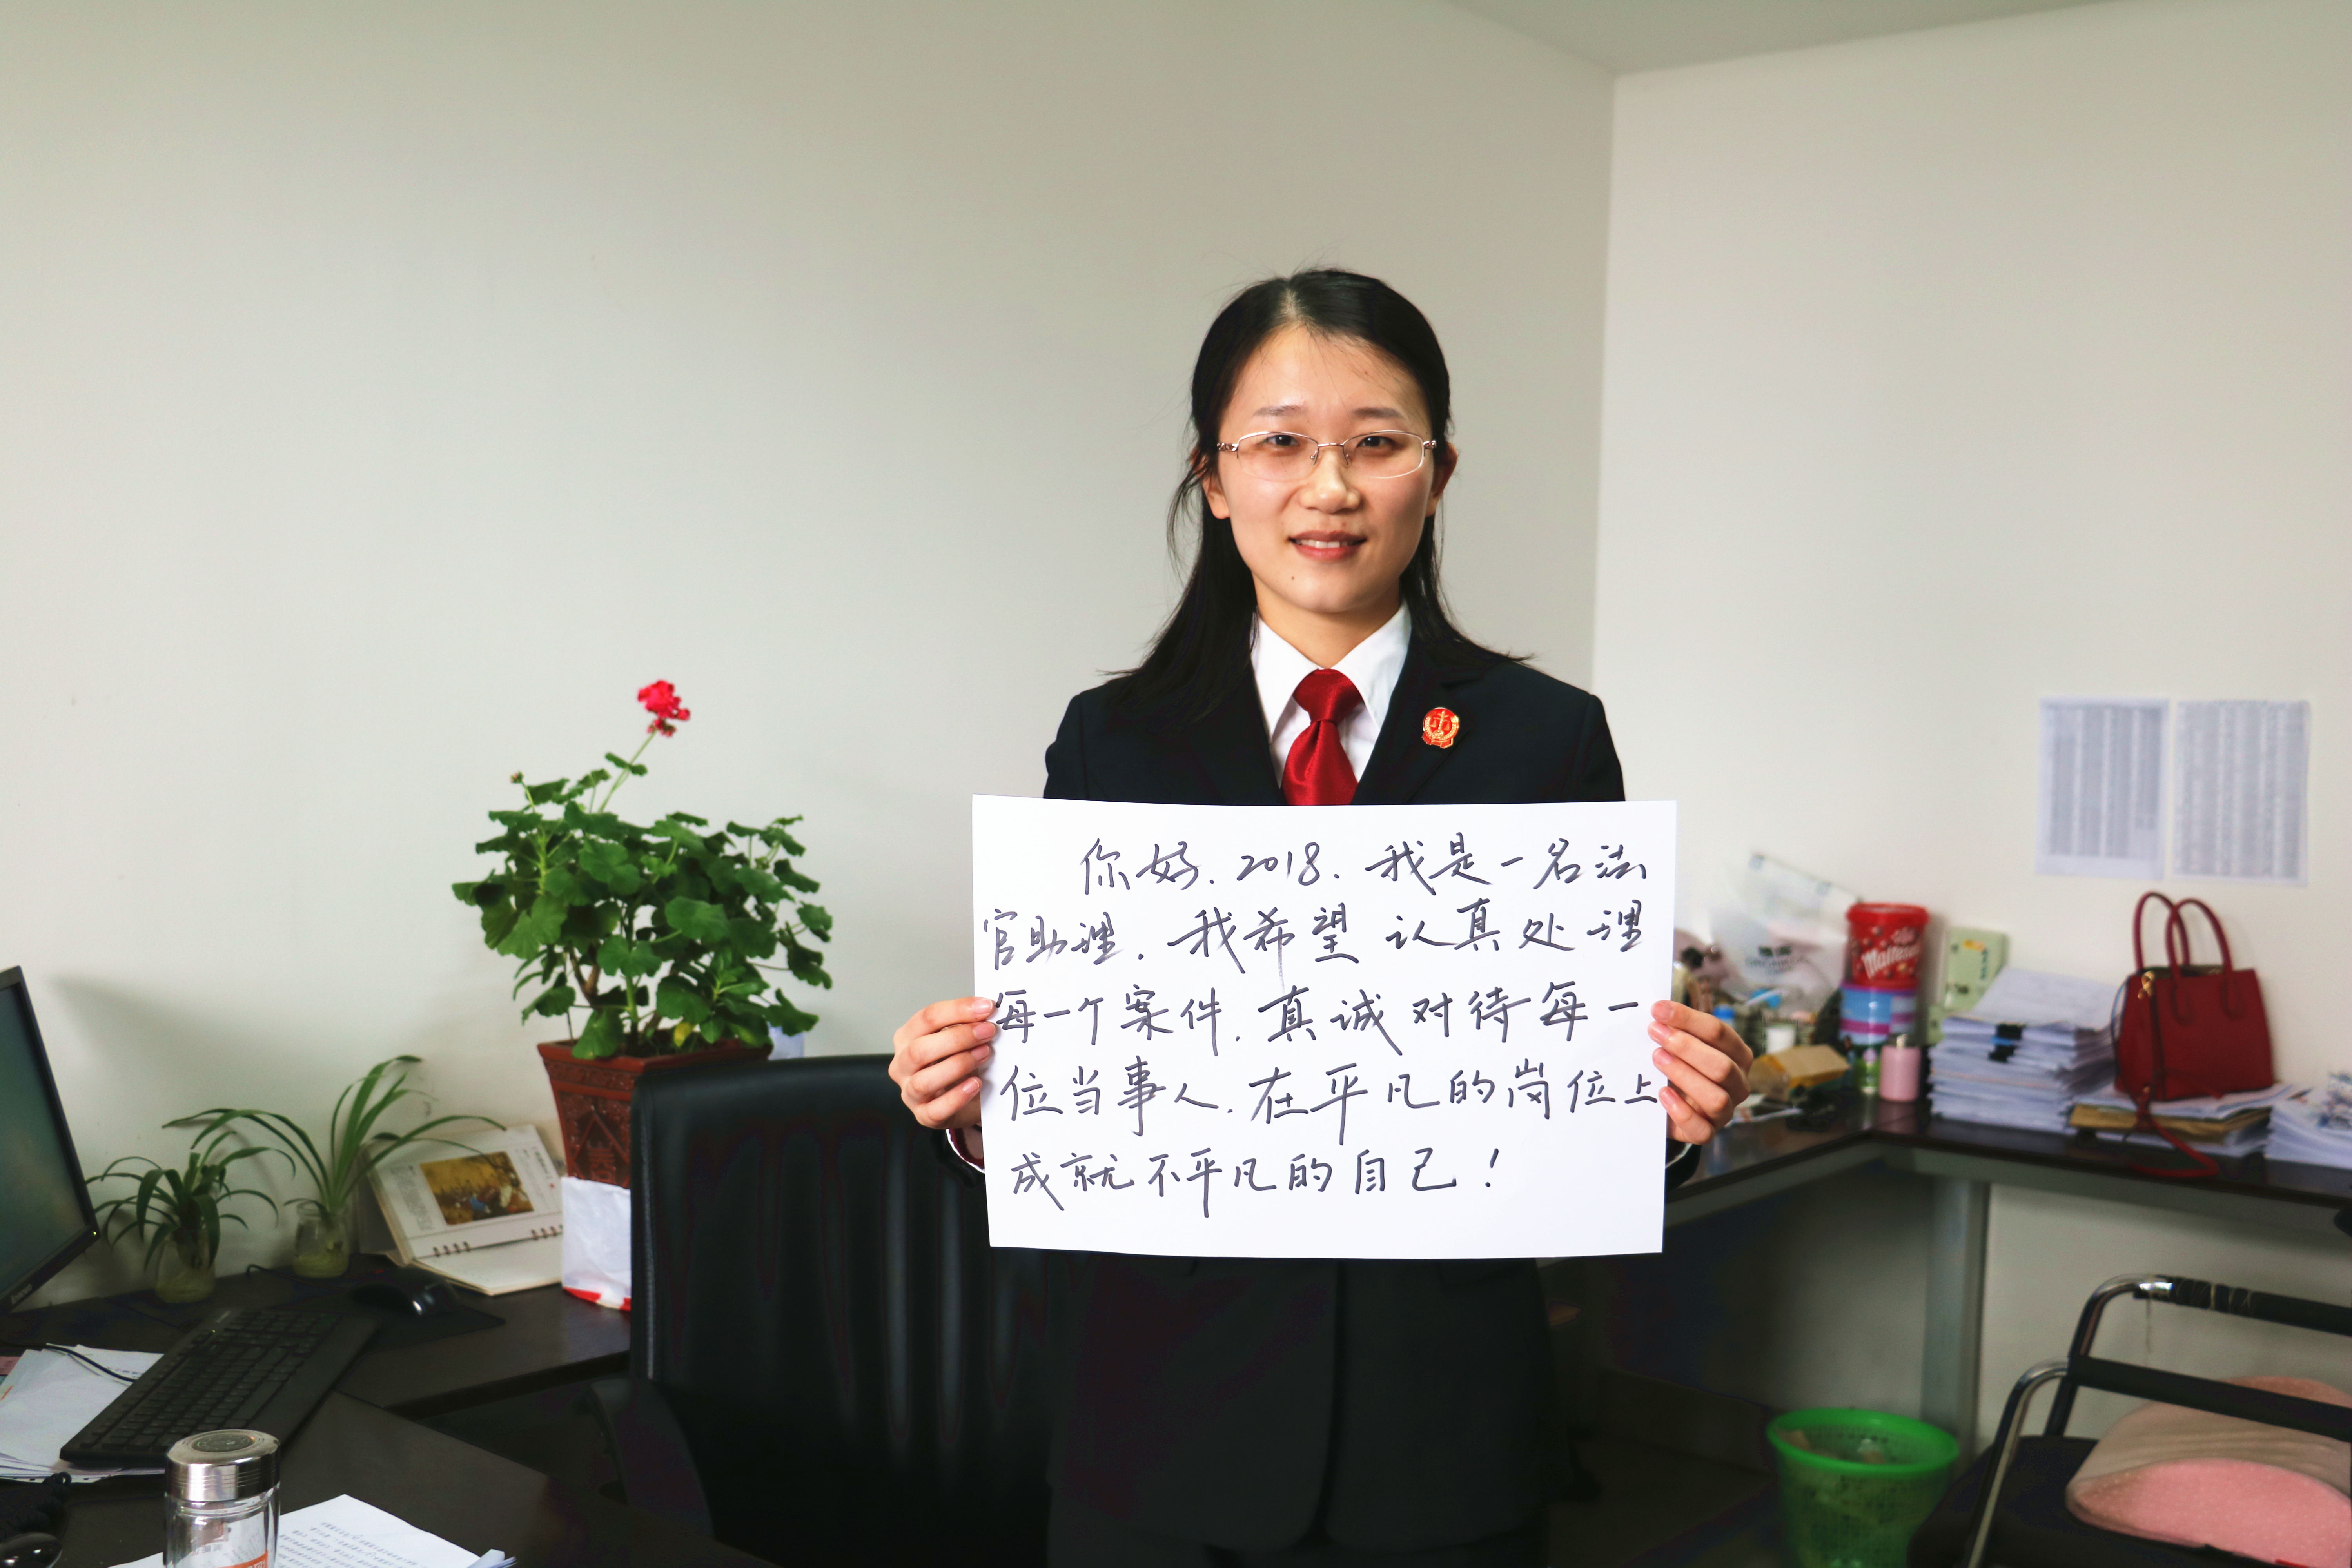 你好，2018，我是一名法
官助理，我希望认真处理
每一个案件，真诚对待每一
位当事人，在平凡的岗位上
成就不平凡的自己！
Maltesers